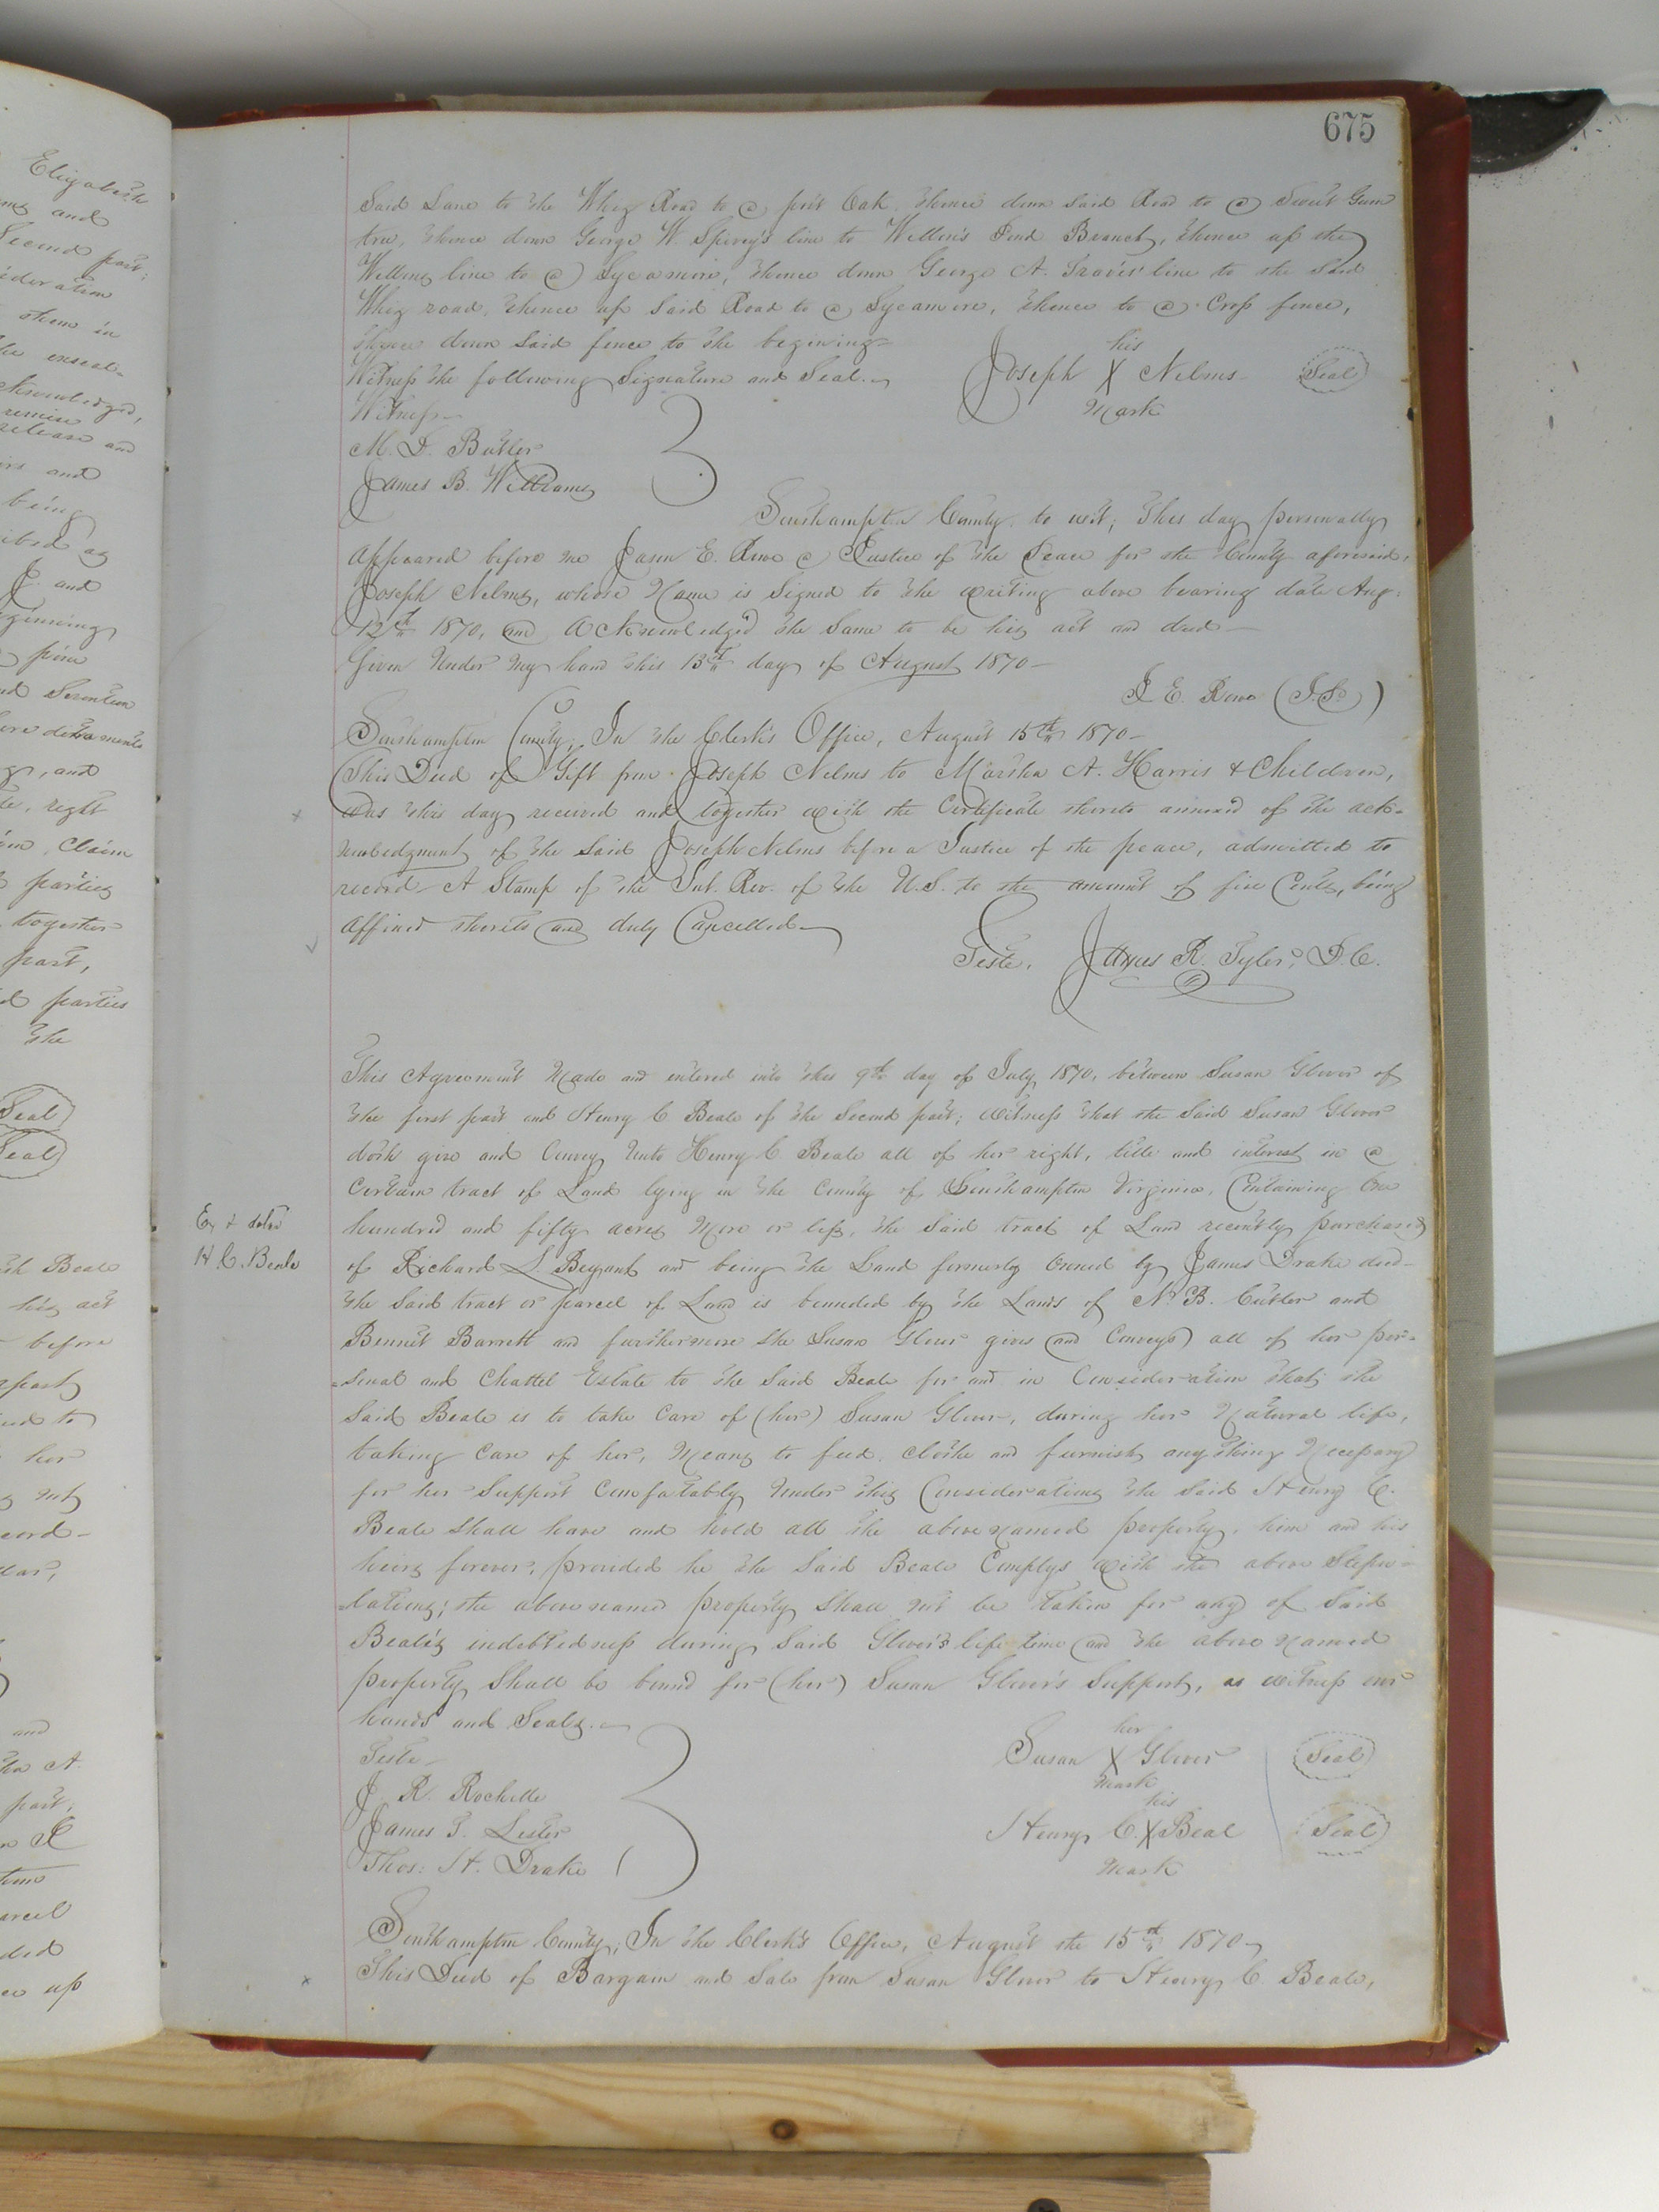 675
Said Lane to the Whig Road to a post Oak, thence down said Road to a Sweet Gum
tree, thence down George W. Spivey's line to Wellon's Pond Branch, thence up the
Wellons line to a Sycamore, thence down George A. Travis' line to the said
Whig road, thence up said Road to a Sycamore, thence to a Cross fence,
thence down said fence to the begining-
Witness the following Signature and Seal.
his
Joseph X Nelms (Seal)
Mark
Witness
M. D. Butler
James B. Williams
Southampton County, to wit; This day personally
Appeared before me Jason E. Rowe a Justice of the Peace for the County aforesaid,
Joseph Nelms, whose Name is Signed to the writing above bearing date Aug:
12th 1870, and Acknowledged the Same to be his act and deed-
Given Under my hand this 13th day of August 1870-
J E. Rowe (J.P.)
Southampton County; In the Clerk's Office, August 15th 1870-
This Deed of Gift from Joseph Nelms to Martha A. Harris & Children,
was this day received and together with the Certificate thereto annexed of the ack-
nowledgment of the Said Joseph Nelms before a Justice of the peace, admitted to
record- A Stamp of the Int. Rev. of the U.S. to the amount of five Cents, being
affixed thereto and duly Cancelled-
Teste, James R. Tyler, D.C.
This Agreement Made and entered into this 9th day of July 1870, between Susan Glover of
the first part and Henry C Beale of the Second part; Witness that the said Susan Glover
doth give and Convey Unto Henry C Beale all of her right, title and interest in a
Certain tract of Land lying in the County of Southampton Virginia, Containing One
hundred and fifty acres More or less, the said tract of Land recently purchased
Ex & deld
H. C. Beale
of Richard L. Bryant and being the Land formerly Owned by James Drake decd-
the Said tract or parcel of Land is bounded by the Lands of N. B. Cutler and
Bennet Barrett and furthermore She Susan Glover gives and Conveys all of her per-
-sonal and Chattel Estate to the Said Beale for and in Consideration that the
Said Beale is to take Care of (her) Susan Glover, during her Natural life,
taking Care of her, Means to feed, clothe and furnish any thing Necessary
for her Support Comfatably Under this Considerations the Said Henry C.
Beale Shall have and hold all the above named property, him and his
heirs forever, provided he the Said Beale Complys with the above Stipu-
-lations; the above named property Shall not be Taken for any of Said
Beale's indebtedness during Said Glover's life time and the above named
property Shall be bound for (her) Susan Glover's Support, as witness our
hands and Seals.
Teste
J. R. Rochelle
James T. Lester
Thos: H. Drake
her
Susan X Glover (Seal)
Mark
his
Henry C. X Beal (Seal)
Mark
Southampton County; In the Clerk's Office, August the 15th 1870-
This Deed of Bargain and Sale from Susan Glover to Henry C. Beale,